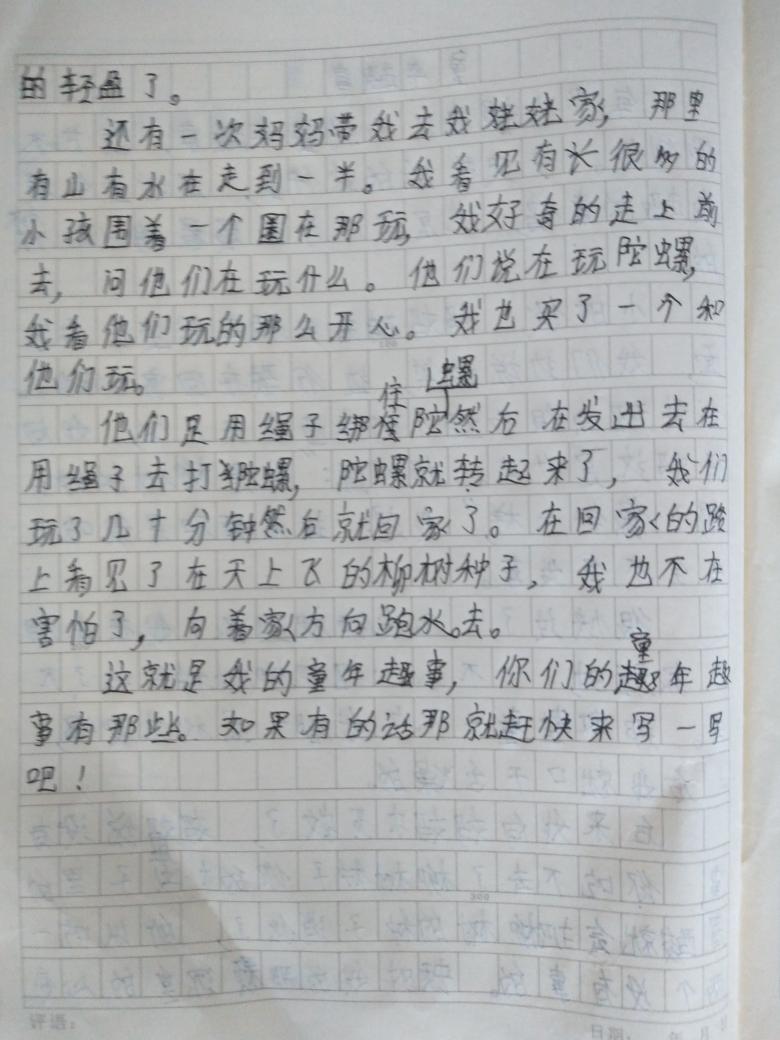 的轻盈了。
还有一次妈妈带我去我姥姥家，那里
有山有水在走到一半。我看见有长很多的
小孩围着一个圈在那玩，我好奇的走上前
去，问他们在玩什么。他们说在玩陀螺，
我看他们玩的那么开心。我也买了一个和
他们玩。
他们是用绳子绑住陀螺然后在发出去在
用绳子去打陀螺，陀螺就转起来了，我们
玩了几十分钟然后就回家了。在回家的路
上看见了在天上飞的柳树种子，我也不在
害怕了，向着家方向跑水。去。
这就是我的童年趣事，你们的童年趣
事有那些。如果有的话那就赶快来写一写
吧！
300
评语：
日期： 年 月